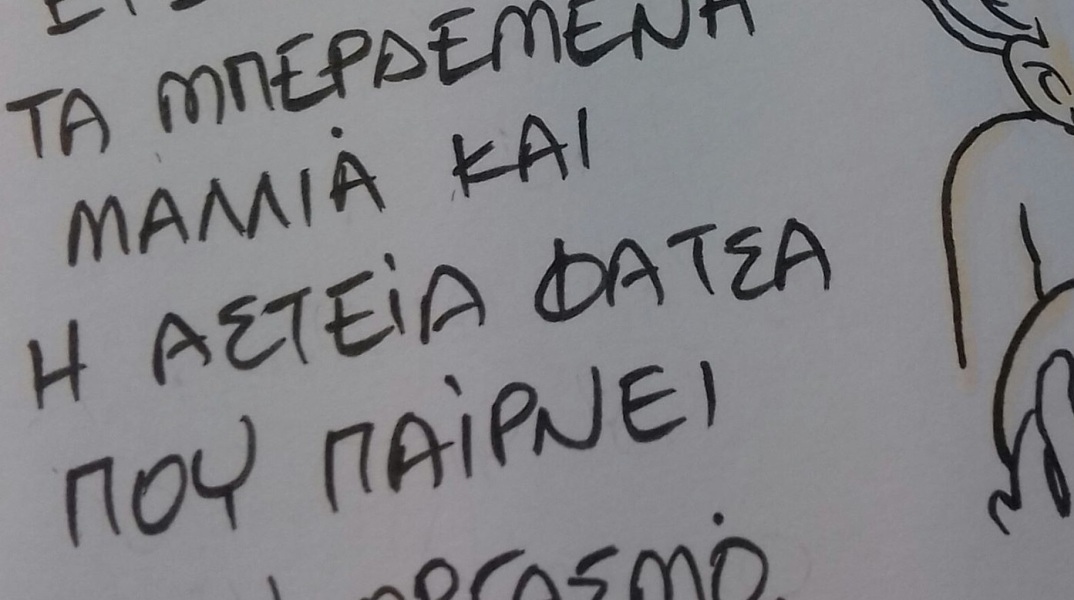 ΤΑ ΜΠΕΡΔΕΜΕΝΑ
ΜΑΛΛΙΆ ΚΑΙ
Η ΑΣΤΕΊΑ ΦΑΤΣΑ
ΠΟΥ ΠΑΊΡΝΕΙ
ΟΡΓΑΣΜΌ